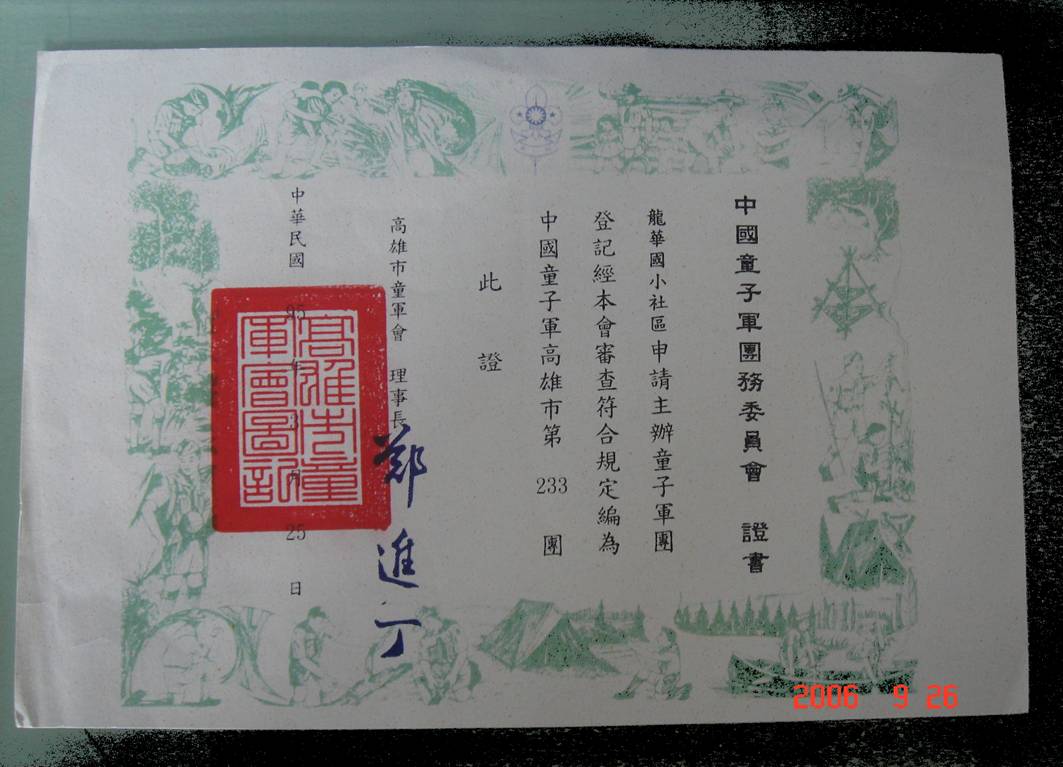 中國童子軍團務委員會 證書
龍華國小社區申請主辦童子軍團
登記經本會審查符合規定編為
中國童子軍高雄市第 233 團
此證
高雄市童軍會 理事長 鄭進丁
中華民國 95 年 3 月 25 日
高雄市童
軍會圖記
2006 9 26